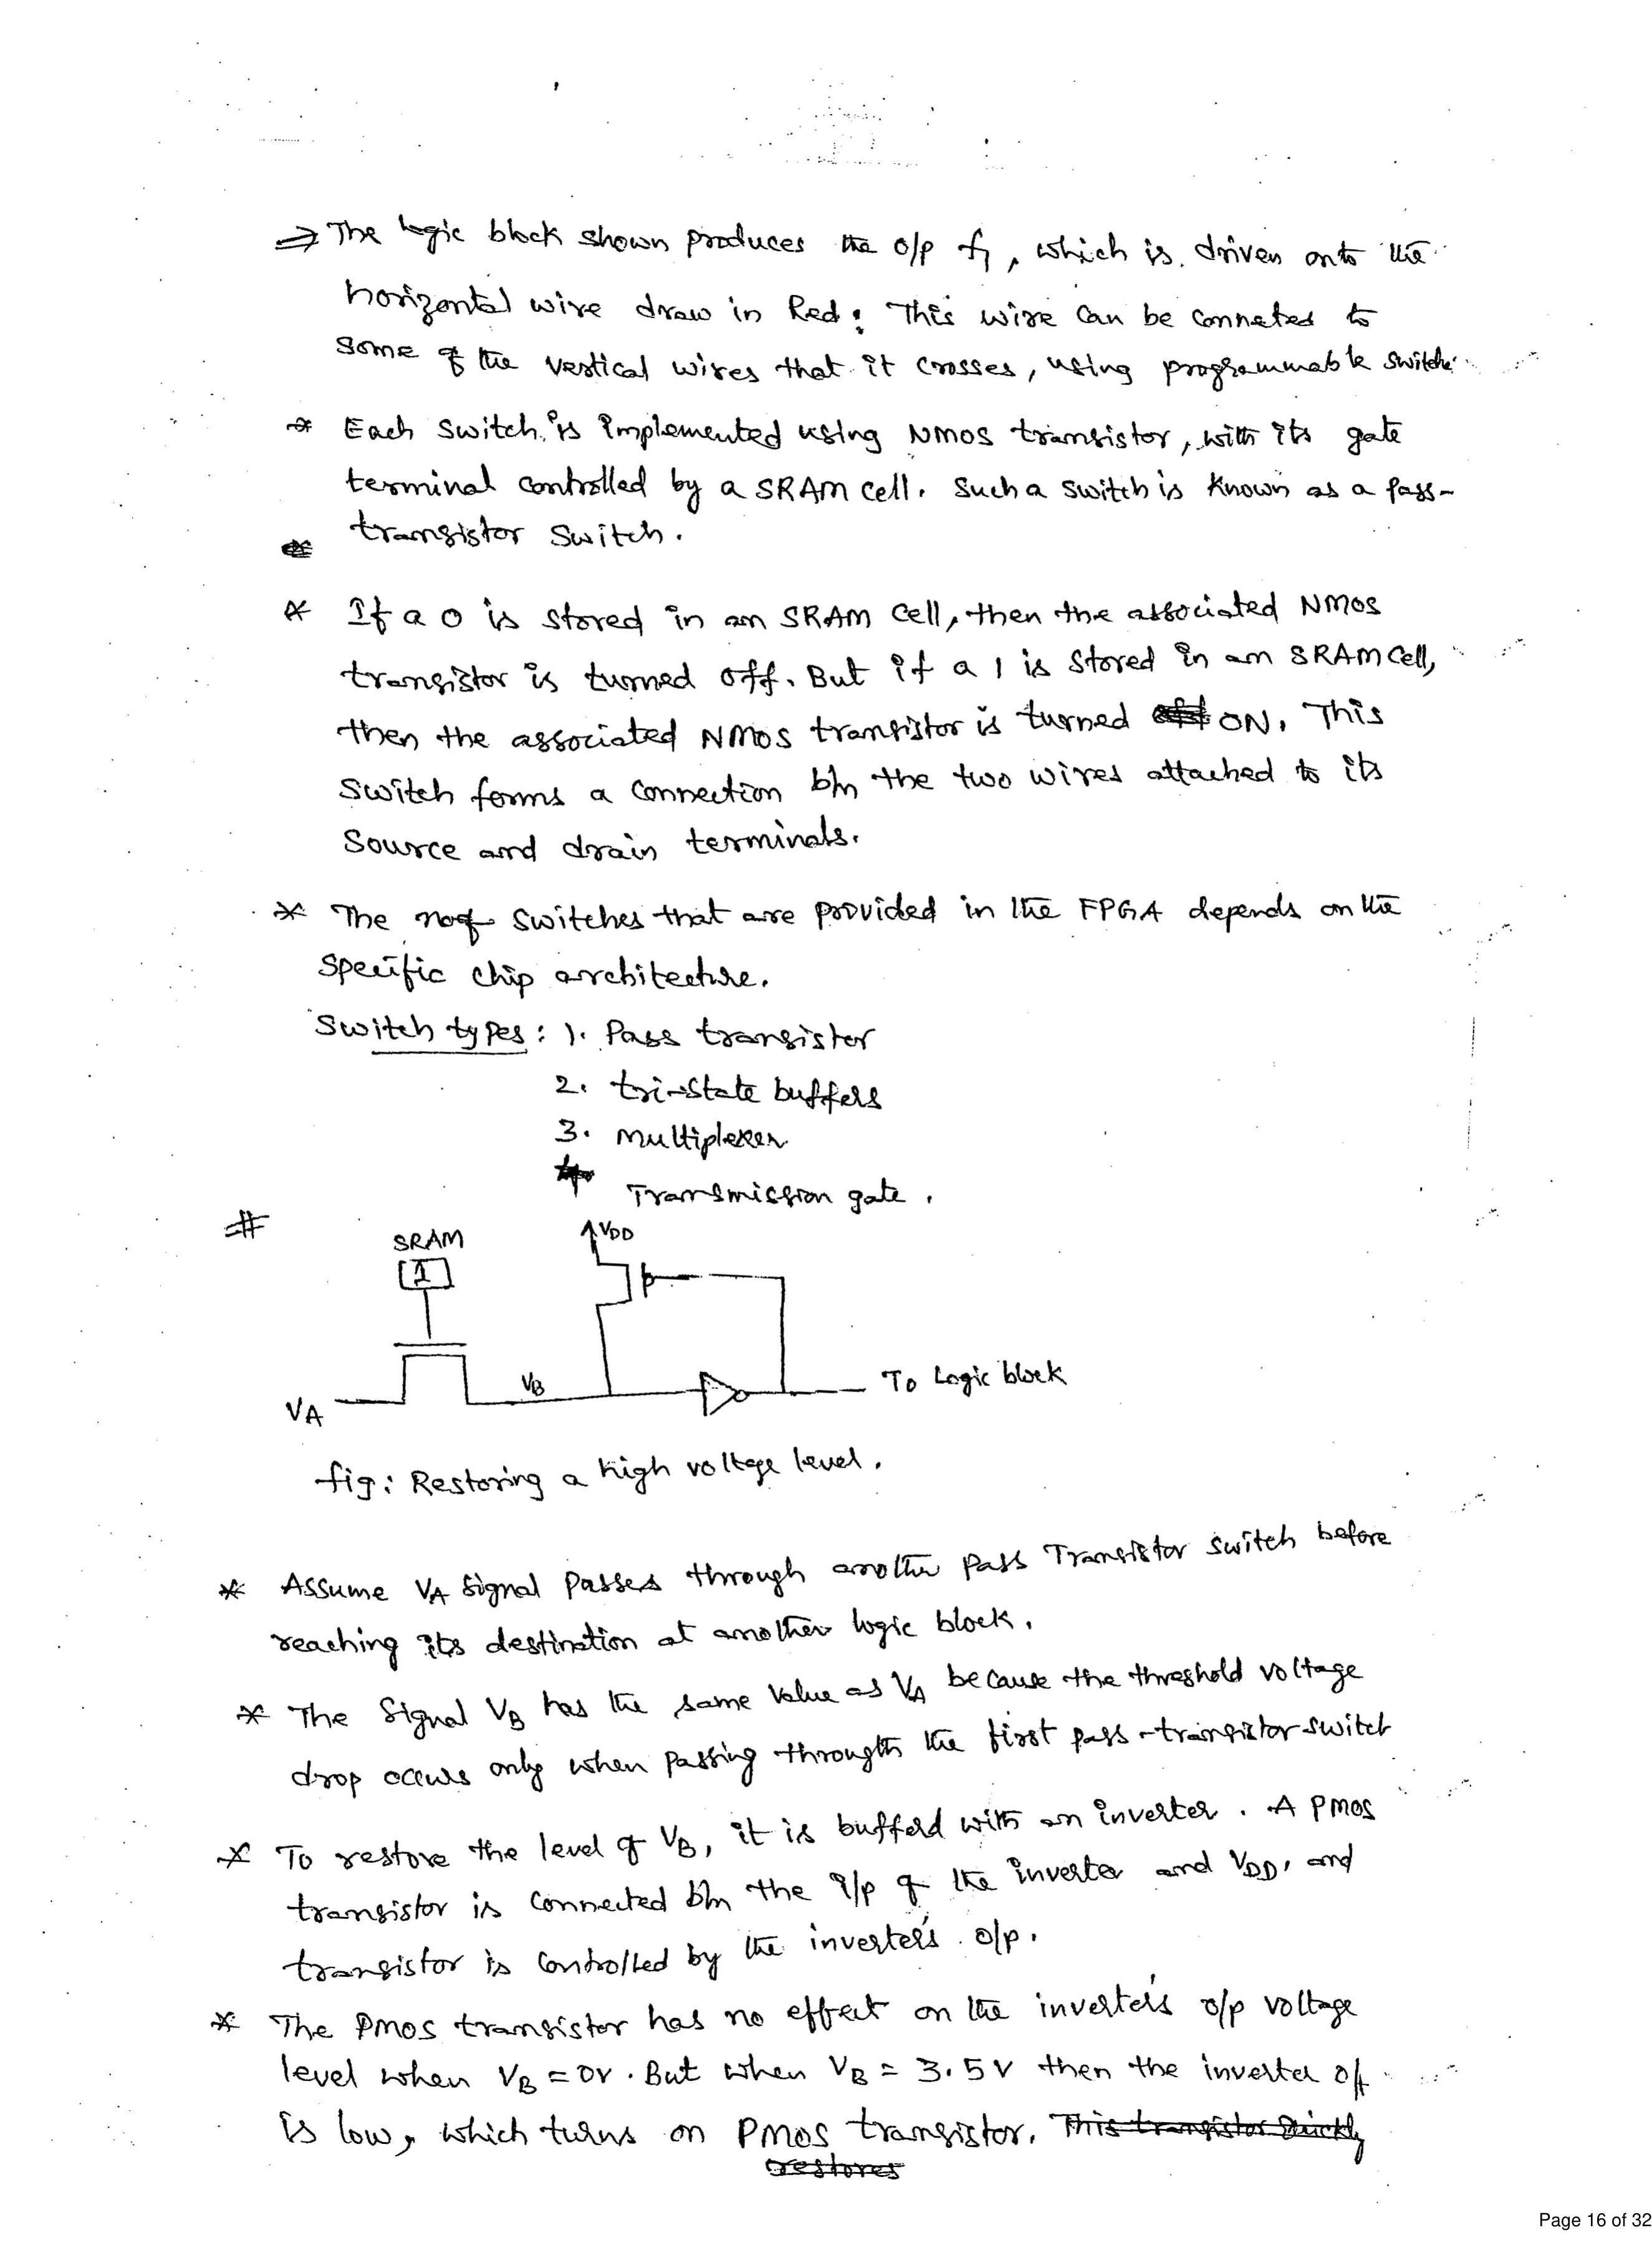 ⇒ The logic block shown produces the o/p f1, which is driven onto the
horizontal wire draw in Red. This wire can be conneted to
some of the vertical wires that it crosses, using programmable switche
* Each switch is implemented using NMOS transistor, with its gate
terminal controlled by a SRAM cell. Such a switch is known as a pass-
transistor switch.
* If a 0 is stored in an SRAM cell, then the associated NMOS
transistor is turned off. But if a 1 is stored in an SRAM cell,
then the associated NMOS transistor is turned ON. This
switch forms a connection b/n the two wires attached to its
source and drain terminals.
* The no of switches that are provided in the FPGA depends on the
specific chip architecture.
Switch types: 1. Pass transistor
2. tri-state buffers
3. multiplexer
Transmission gate.
#
SRAM
1
VDD
VA
VB
To Logic block
fig: Restoring a high voltage level.
* Assume VA signal passes through another pass Transistor switch before
reaching its destination at another logic block.
* The signal VB has the same value as VA because the threshold voltage
drop occurs only when passing through the first pass-transistor-switch
* To restore the level of VB, it is bufferd with an inverter. A PMOS
transistor is connected b/n the i/p of the inverter and VDD, and
transistor is controlled by the inverter's o/p.
* The PMOS transistor has no effect on the inverter's o/p voltage
level when VB = 0V. But when VB = 3.5V then the inverter o/p
is low, which turns on PMOS transistor. This transistor quickly
restores
Page 16 of 32